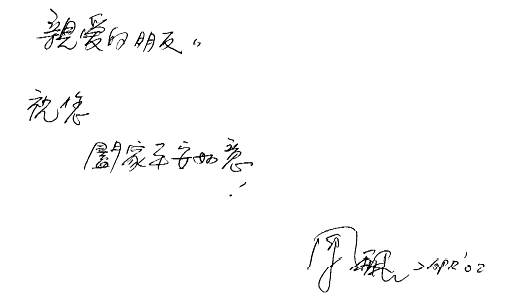 親愛的朋友。
祝您
闔家平安如意!
周飄 2 APR '02